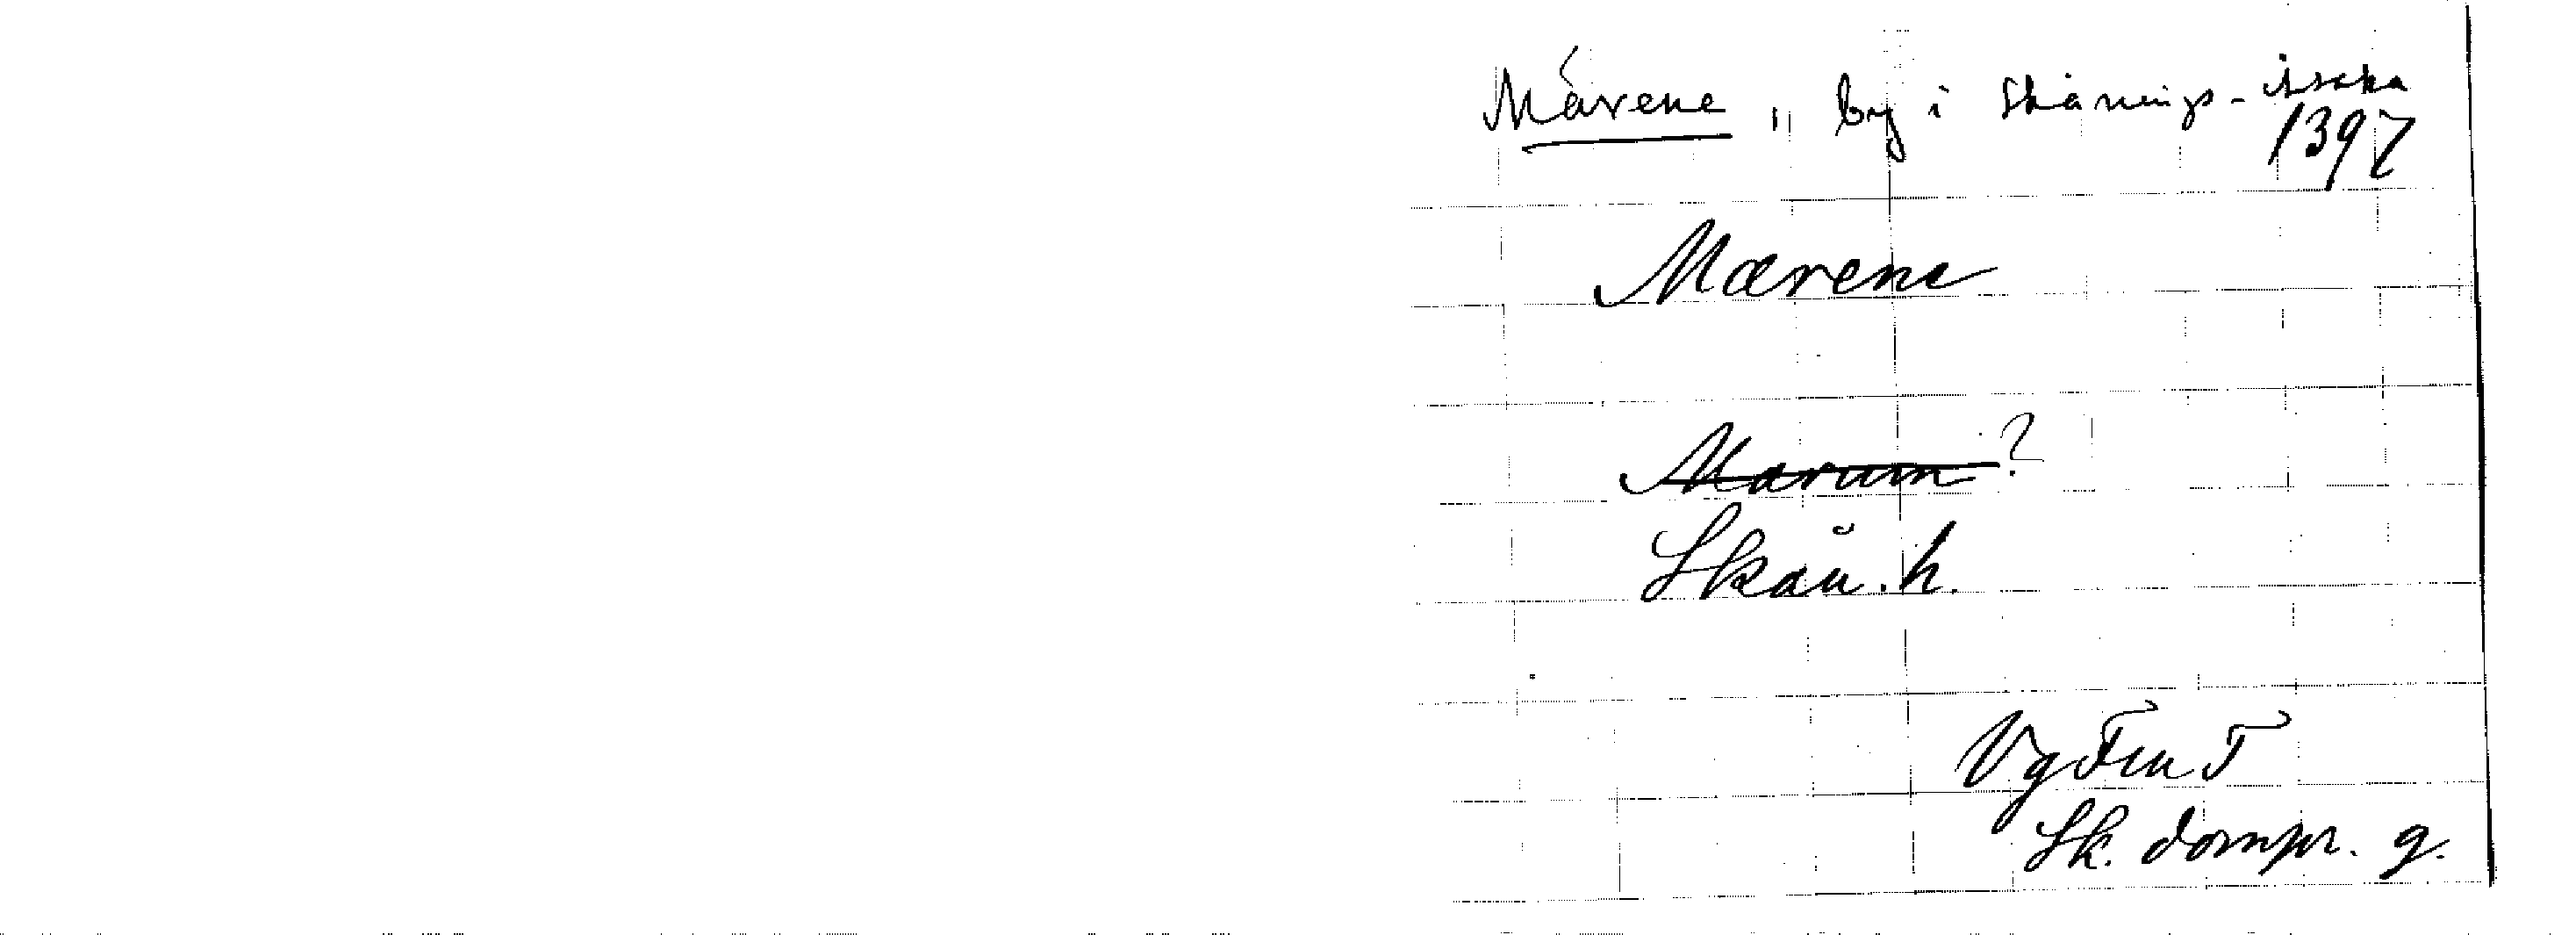 Mårene, by i Skånings-Åsaka
1397
Mærene
Marum ?
Skån. h.
Vg
Sk. dompr. g.